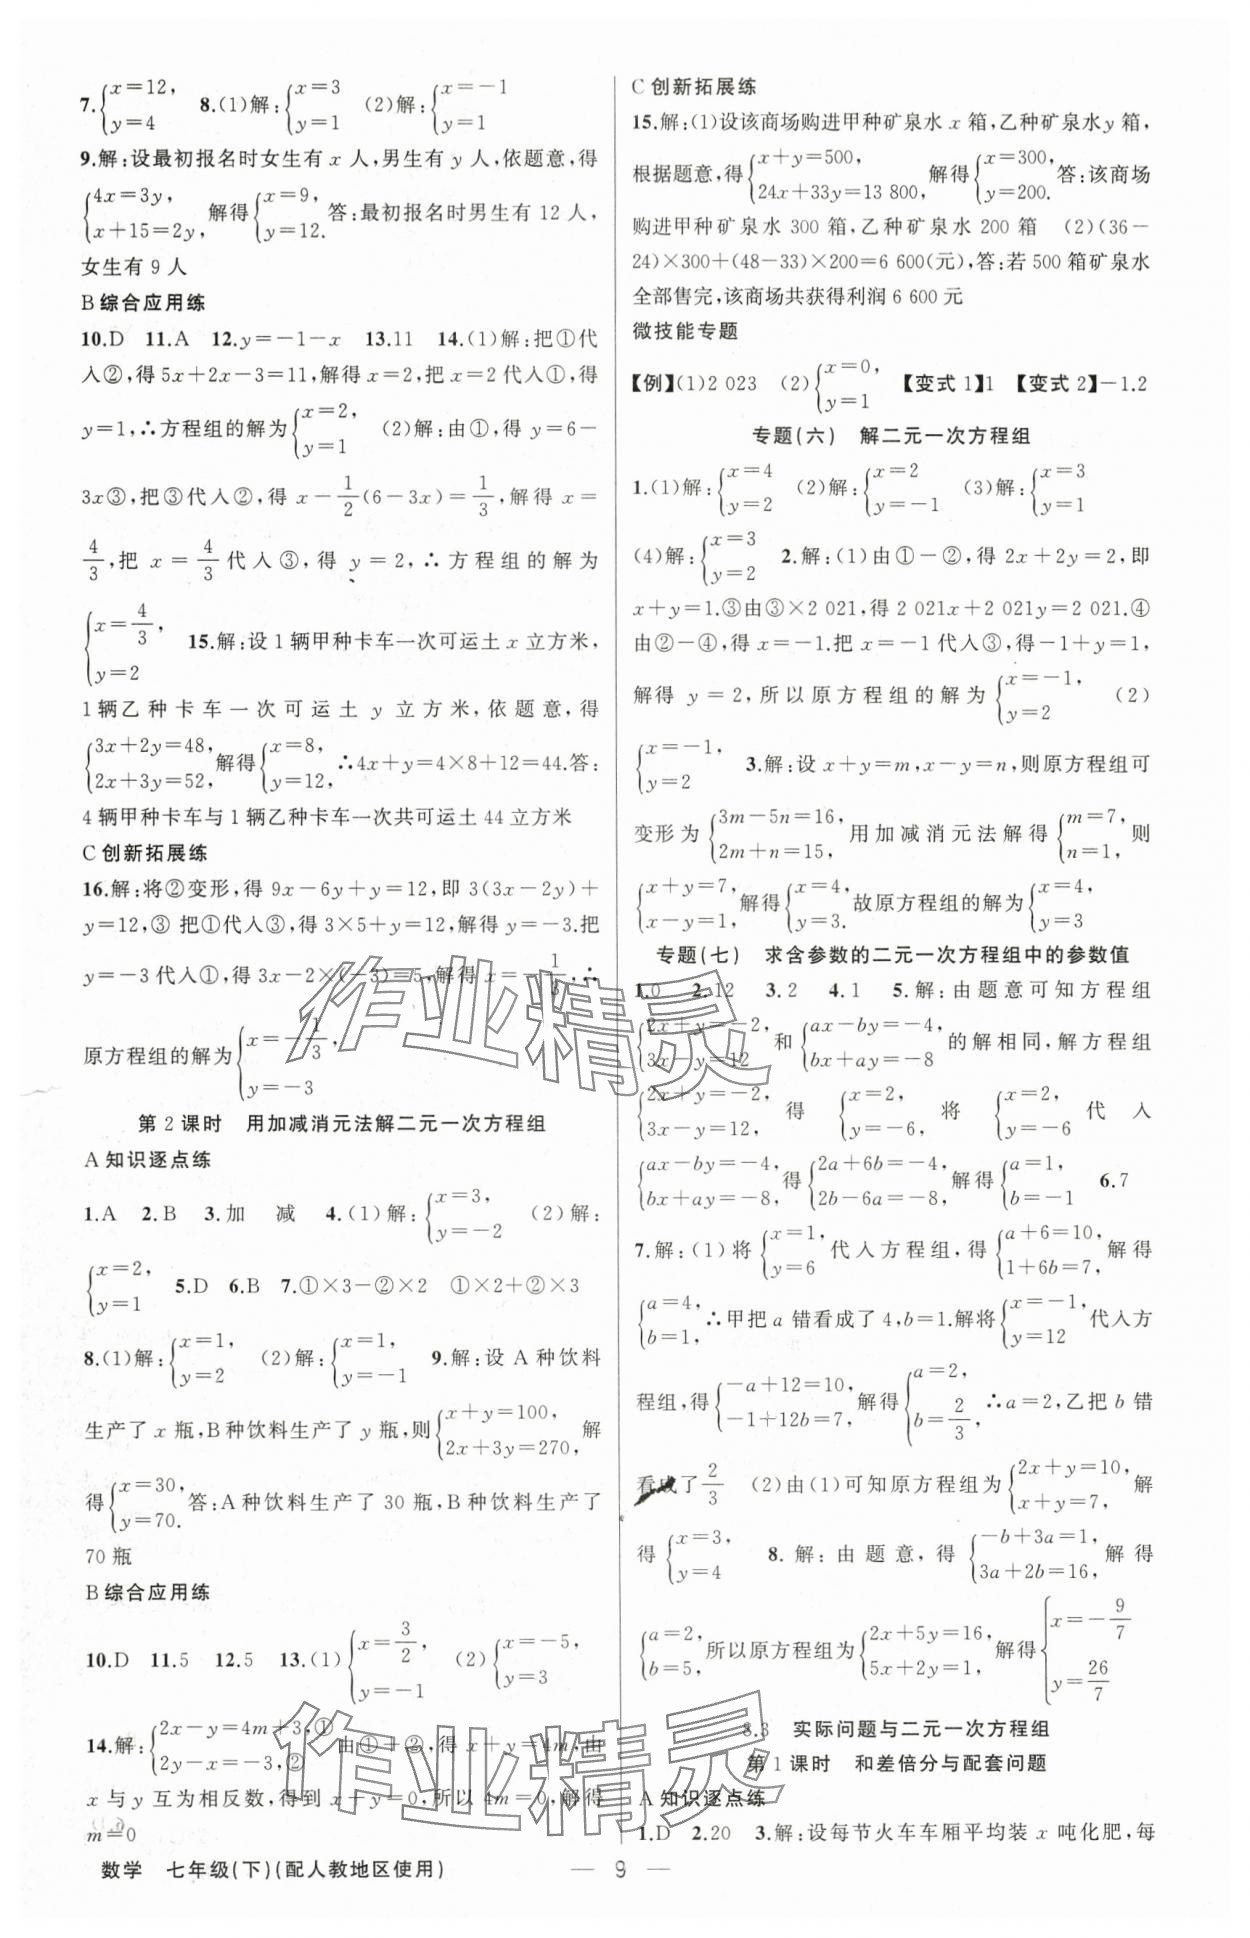 7.{x=12, y=4 8.(1)解:{x=3 y=1 (2)解:{x=-1 y=1
9.解:设最初报名时女生有 x 人,男生有 y 人,依题意,得
{4x=3y, x+15=2y, 解得{x=9, y=12. 答:最初报名时男生有 12 人,
女生有 9 人
B 综合应用练
10.D 11.A 12.y=-1-x 13.11 14.(1)解:把①代
入②,得 5x+2x-3=11,解得 x=2,把 x=2 代入①,得
y=1,∴方程组的解为{x=2, y=1 (2)解:由①,得 y=6-
3x③,把③代入②,得 x-1/2(6-3x)=1/3,解得 x=
4/3,把 x=4/3 代入③,得 y=2,∴方程组的解为
{x=4/3, y=2 15.解:设 1 辆甲种卡车一次可运土 x 立方米,
1 辆乙种卡车一次可运土 y 立方米,依题意,得
{3x+2y=48, 2x+3y=52, 解得{x=8, y=12, ∴4x+y=4×8+12=44.答:
4 辆甲种卡车与 1 辆乙种卡车一次共可运土 44 立方米
C 创新拓展练
16.解:将②变形,得 9x-6y+y=12,即 3(3x-2y)+
y=12,③ 把①代入③,得 3×5+y=12,解得 y=-3.把
y=-3 代入①,得 3x-2×(-3)=5,解得 x=-1/3.∴
原方程组的解为{x=-1/3, y=-3
第 2 课时 用加减消元法解二元一次方程组
A 知识逐点练
1.A 2.B 3.加 减 4.(1)解:{x=3, y=-2 (2)解:
{x=2, y=1 5.D 6.B 7.①×3-②×2 ①×2+②×3
8.(1)解:{x=1, y=2 (2)解:{x=1, y=-1 9.解:设 A 种饮料
生产了 x 瓶,B 种饮料生产了 y 瓶,则{x+y=100, 2x+3y=270, 解
得{x=30, y=70. 答:A 种饮料生产了 30 瓶,B 种饮料生产了
70 瓶
B 综合应用练
10.D 11.5 12.5 13.(1){x=3/2, y=-1 (2){x=-5, y=3
14.解:{2x-y=4m+3,① 2y-x=-3,② 由①+②,得 x+y=4m,由
x 与 y 互为相反数,得到 x+y=0,所以 4m=0,解得
m=0
数学 七年级(下)(配人教地区使用)
C 创新拓展练
15.解:(1)设该商场购进甲种矿泉水 x 箱,乙种矿泉水 y 箱,
根据题意,得{x+y=500, 24x+33y=13 800, 解得{x=300, y=200. 答:该商场
购进甲种矿泉水 300 箱,乙种矿泉水 200 箱 (2)(36-
24)×300+(48-33)×200=6 600(元),答:若 500 箱矿泉水
全部售完,该商场共获得利润 6 600 元
微技能专题
【例】(1)2 023 (2){x=0, y=1 【变式 1】1 【变式 2】-1.2
专题(六) 解二元一次方程组
1.(1)解:{x=4 y=2 (2)解:{x=2 y=-1 (3)解:{x=3 y=1
(4)解:{x=3 y=2 2.解:(1)由①-②,得 2x+2y=2,即
x+y=1.③由③×2 021,得 2 021x+2 021y=2 021.④
由②-④,得 x=-1.把 x=-1 代入③,得-1+y=1,
解得 y=2,所以原方程组的解为{x=-1, y=2 (2)
{x=-1, y=2 3.解:设 x+y=m,x-y=n,则原方程组可
变形为{3m-5n=16, 2m+n=15, 用加减消元法解得{m=7, n=1, 则
{x+y=7, x-y=1, 解得{x=4, y=3. 故原方程组的解为{x=4, y=3
专题(七) 求含参数的二元一次方程组中的参数值
1.0 2.12 3.2 4.1 5.解:由题意可知方程组
{2x+y=-2, 3x-y=12 和{ax-by=-4, bx+ay=-8 的解相同,解方程组
{2x+y=-2, 3x-y=12, 得{x=2, y=-6, 将{x=2, y=-6 代入
{ax-by=-4, bx+ay=-8, 得{2a+6b=-4, 2b-6a=-8, 解得{a=1, b=-1 6.7
7.解:(1)将{x=1, y=6 代入方程组,得{a+6=10, 1+6b=7, 解得
{a=4, b=1, ∴甲把 a 错看成了 4,b=1.解将{x=-1, y=12 代入方
程组,得{-a+12=10, -1+12b=7, 解得{a=2, b=2/3, ∴a=2,乙把 b 错
看成了2/3 (2)由(1)可知原方程组为{2x+y=10, x+y=7, 解
得{x=3, y=4 8.解:由题意,得{-b+3a=1, 3a+2b=16, 解得
{a=2, b=5, 所以原方程组为{2x+5y=16, 5x+2y=1, 解得{x=-9/7 y=26/7
8.3 实际问题与二元一次方程组
第 1 课时 和差倍分与配套问题
A 知识逐点练
1.D 2.20 3.解:设每节火车车厢平均装 x 吨化肥,每
— 9 —
作业精灵
作业精灵